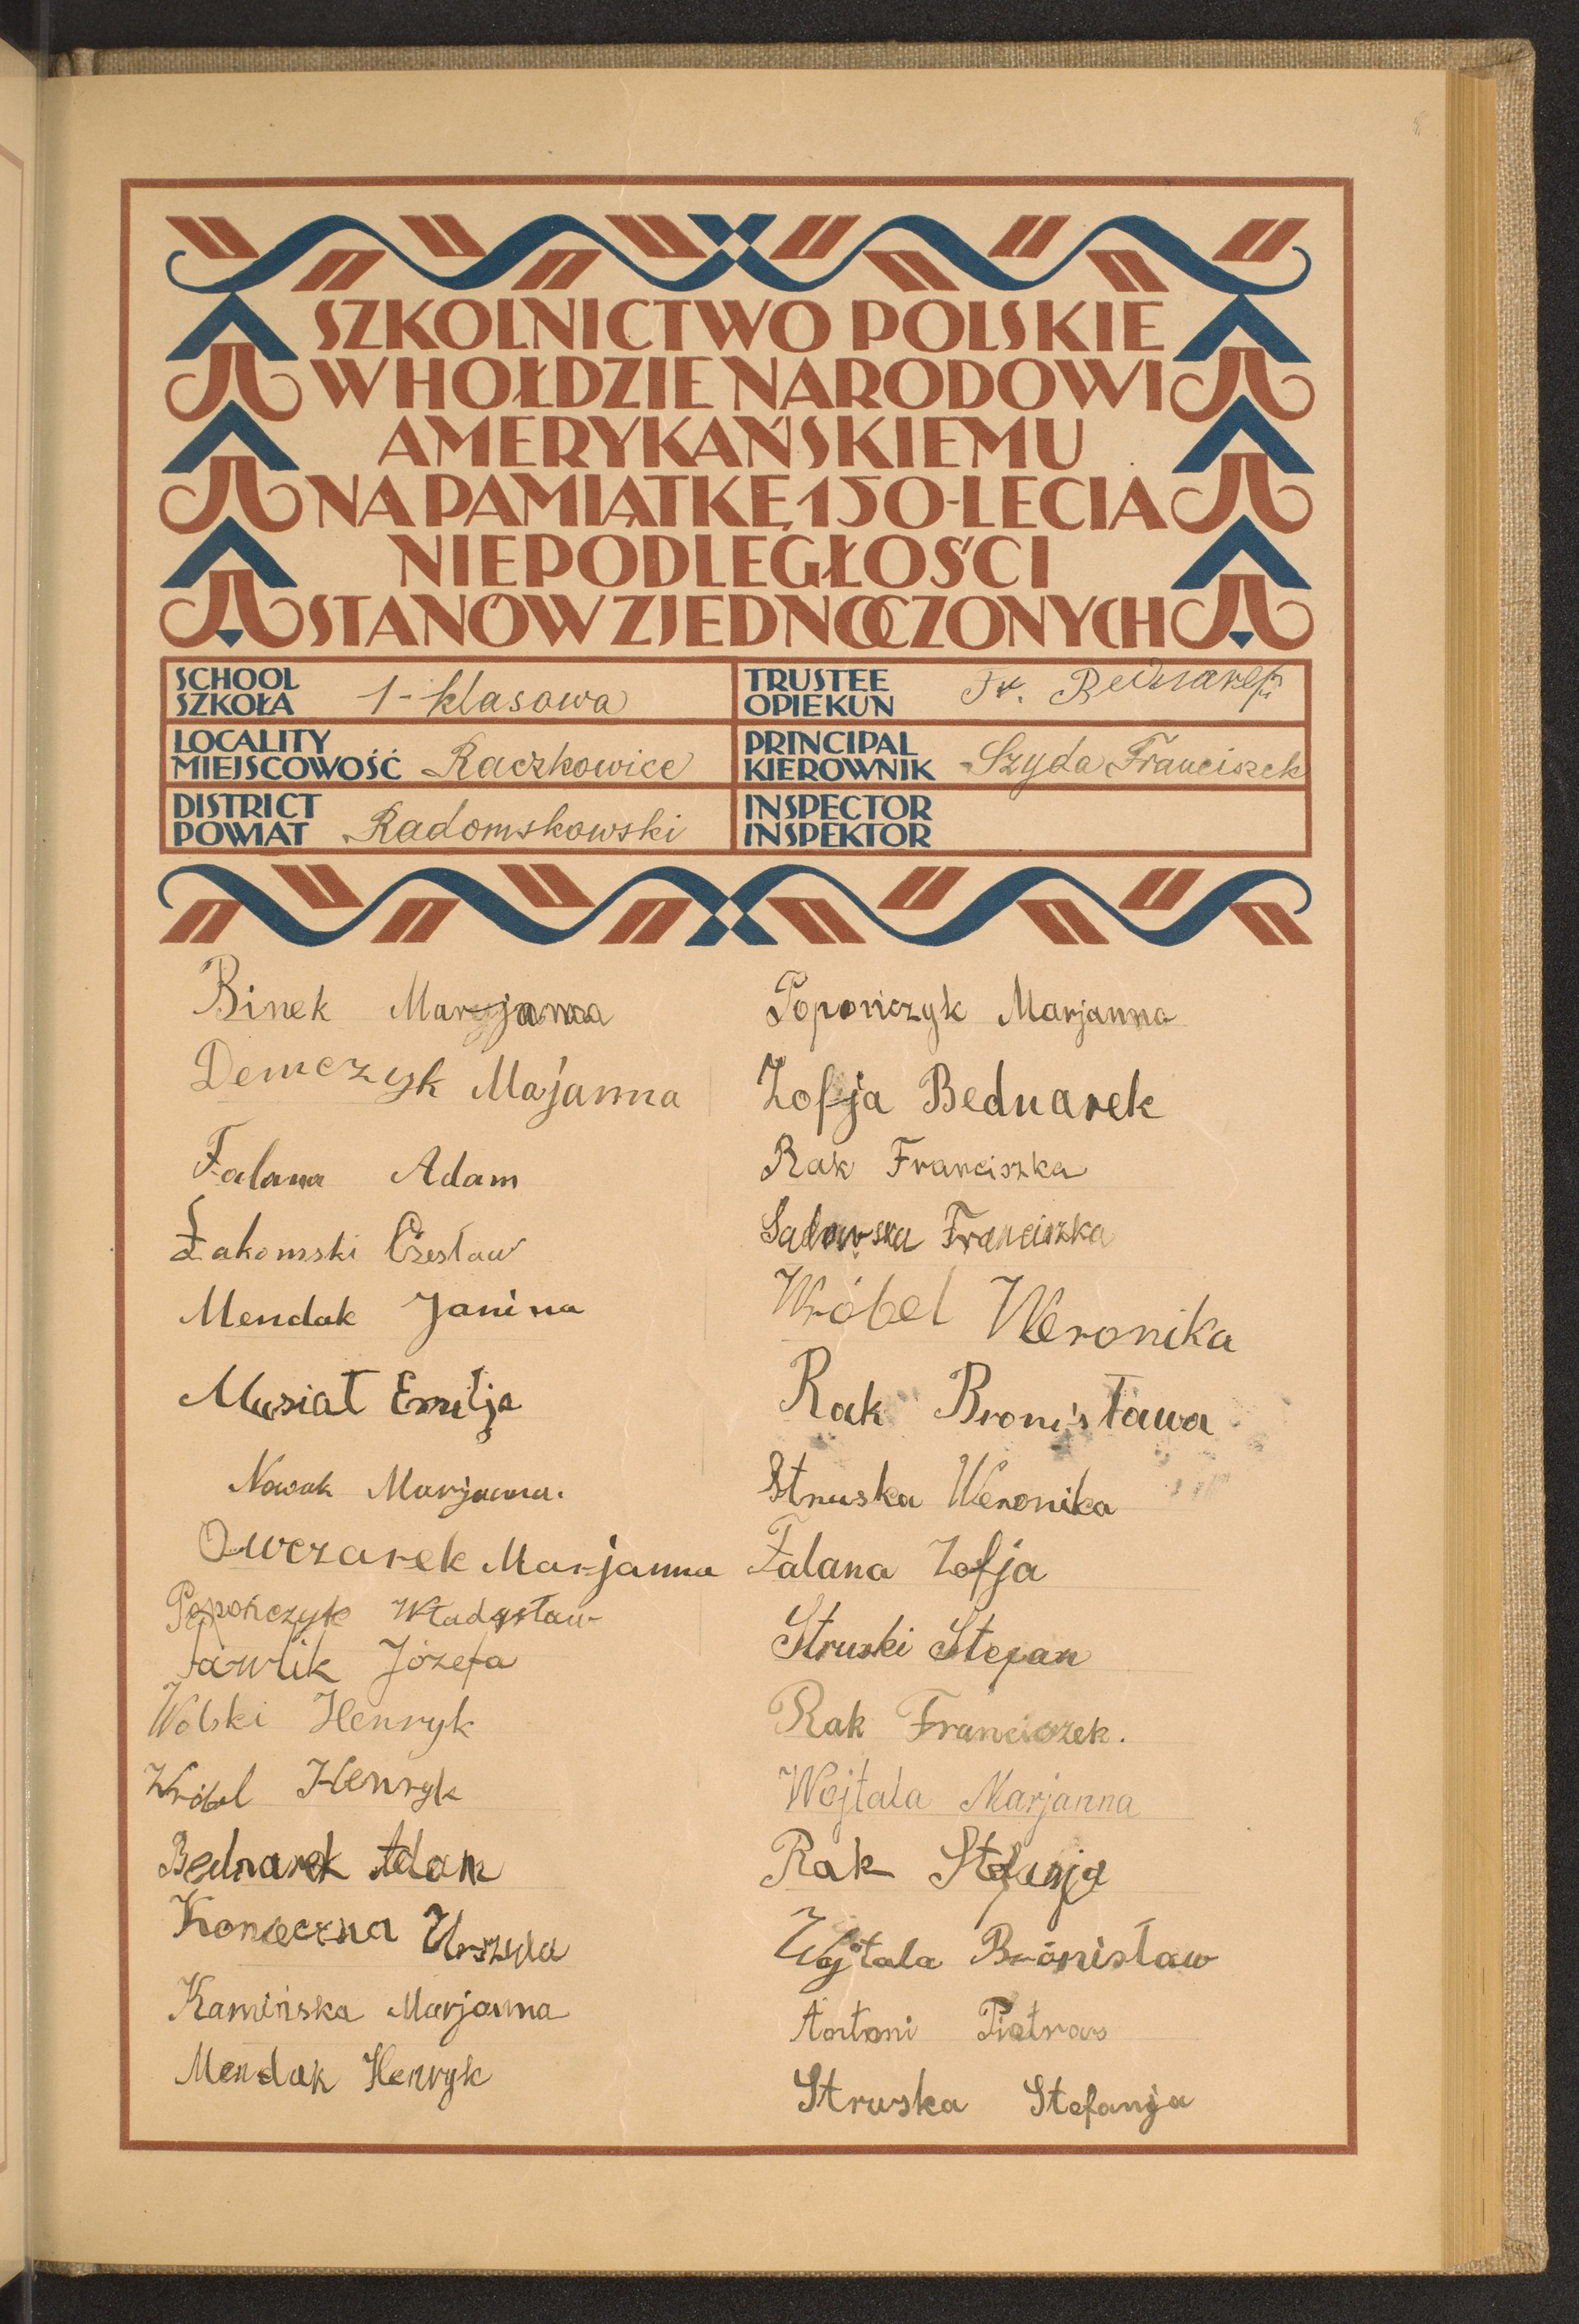 SZKOLNICTWO POLSKIE
W HOŁDZIE NARODOWI
AMERYKAŃSKIEMU
NA PAMIĄTKĘ 150-LECIA
NIEPODLEGŁOŚCI
STANÓW ZJEDNOCZONYCH
SCHOOL
SZKOŁA
1-klasowa
TRUSTEE
OPIEKUN
Fr. Bednarek
LOCALITY
MIEJSCOWOŚĆ
Raczkowice
PRINCIPAL
KIEROWNIK
Szyda Franciszek
DISTRICT
POWIAT
Radomskowski
INSPECTOR
INSPEKTOR
Binek Marjanna
Demczyk Majanna
Falana Adam
Żakomski Czesław
Mendak Janina
Musiał Emilja
Nowak Marjanna.
Owczarek Marjanna
Popończyk Władysław
Pawlik Józefa
Wolski Henryk
Wróbel Henryk
Bednarek Adam
Konieczna Urszula
Kamińska Marjanna
Mendak Henryk
Popończyk Marjanna
Zofja Bednarek
Rak Franciszka
Sadowska Franciszka
Wróbel Weronika
Rak Bronisława
Struska Weronika
Falana Zofja
Struski Stefan
Rak Franciszek.
Wojtala Marjanna
Rak Stefanja
Wojtala Bronisław
Antoni Pietras
Struska Stefanja